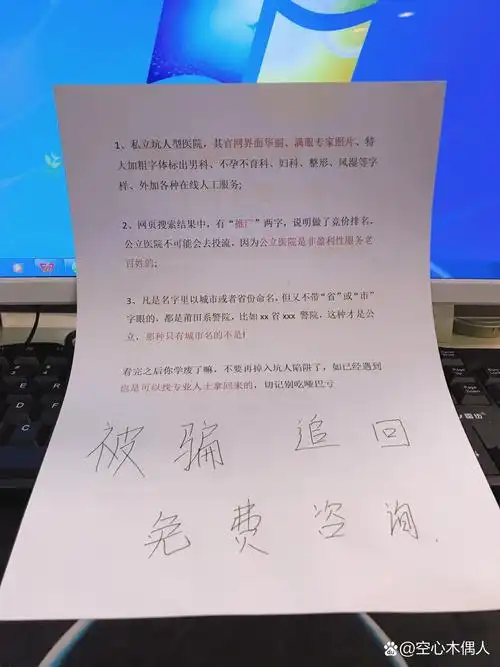 1、私立坑人型医院，其官网界面华丽、满眼专家图片、特
大加粗字体标出男科、不孕不育科、妇科、整形、风湿等字
样、外加各种在线人工服务;
2、网页搜索结果中，有“推广”两字，说明做了竞价排名，
公立医院不可能会去投流，因为公立医院是非盈利性服务老
百姓的;
3、凡是名字里以城市或者省份命名，但又不带“省”或“市”
字眼的，都是莆田系警院，比如 xx 省 xxx 警院，这种才是公
立，那种只有城市名的不是!
看完之后你学废了嘛，不要再掉入坑人陷阱了，如已经遇到
也是可以找专业人士拿回来的，切记别吃哑巴亏
被骗 追回
免费咨询.
@空心木偶人